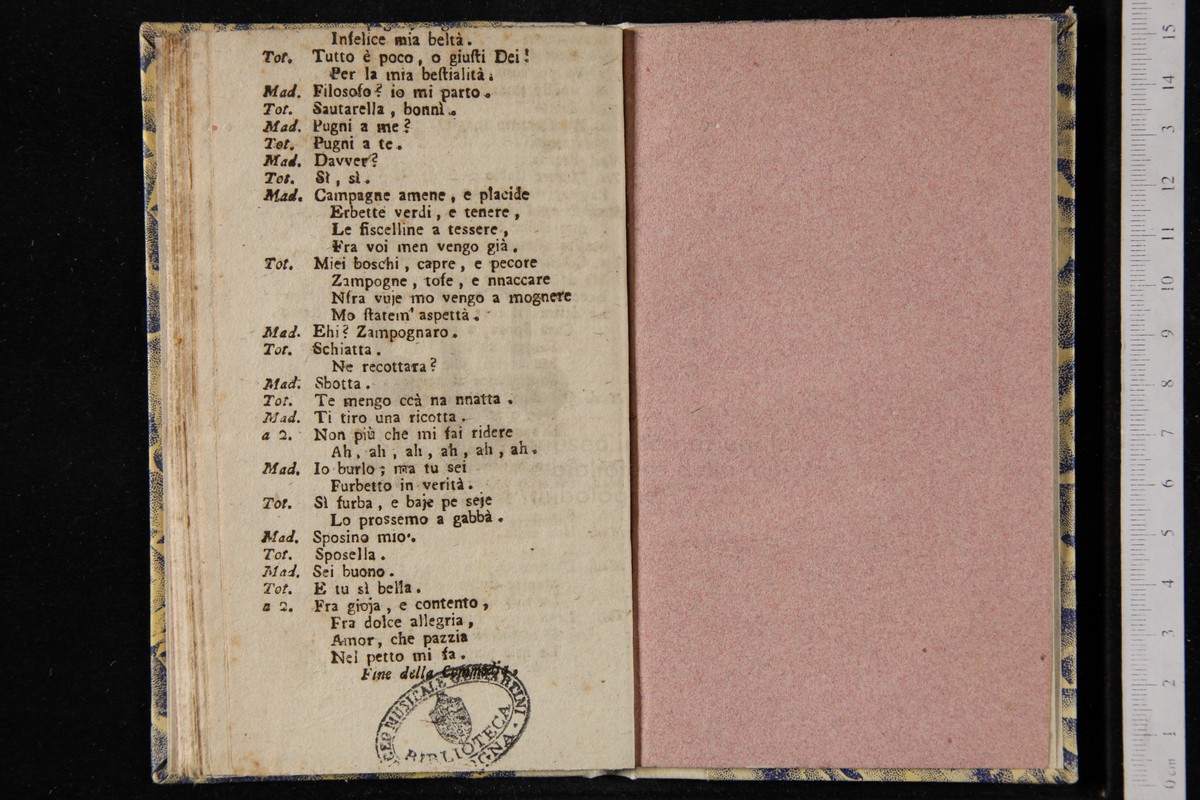 Infelice mia beltà.
Tot. Tutto è poco, o giuſti Dei!
Per la mia beſtialità.
Mad. Filosofo? io mi parto.
Tot. Sautarella, bonnì.
Mad. Pugni a me?
Tot. Pugni a te.
Mad. Davver?
Tot. Sì, sì.
Mad. Campagne amene, e placide
Erbette verdi, e tenere,
Le fiscelline a tessere,
Fra voi men vengo già.
Tot. Miei boschi, capre, e pecore
Zampogne, tofe, e nnaccare
Nfra vuje mo vengo a mognere
Mo ſtatem' aspettà.
Mad. Ehi? Zampognaro.
Tot. Schiatta.
Ne recottara?
Mad. Sbotta.
Tot. Te mengo ccà na nnatta.
Mad. Ti tiro una ricotta.
a 2. Non più che mi fai ridere
Ah, ah, ah, ah, ah, ah.
Mad. Io burlo; ma tu sei
Furbetto in verità.
Tot. Sì furba, e baje pe seje
Lo prossemo a gabbà.
Mad. Sposino mio.
Tot. Sposella.
Mad. Sei buono.
Tot. E tu sì bella.
a 2. Fra gioja, e contento,
Fra dolce allegria,
Amor, che pazzia
Nel petto mi fa.
Fine della Commedia.
MUSICALE G. B. MARTINI
BIBLIOTECA
15
14
3
13
12
2
11
10
9
8
7
6
5
4
1
3
2
1
0 cm